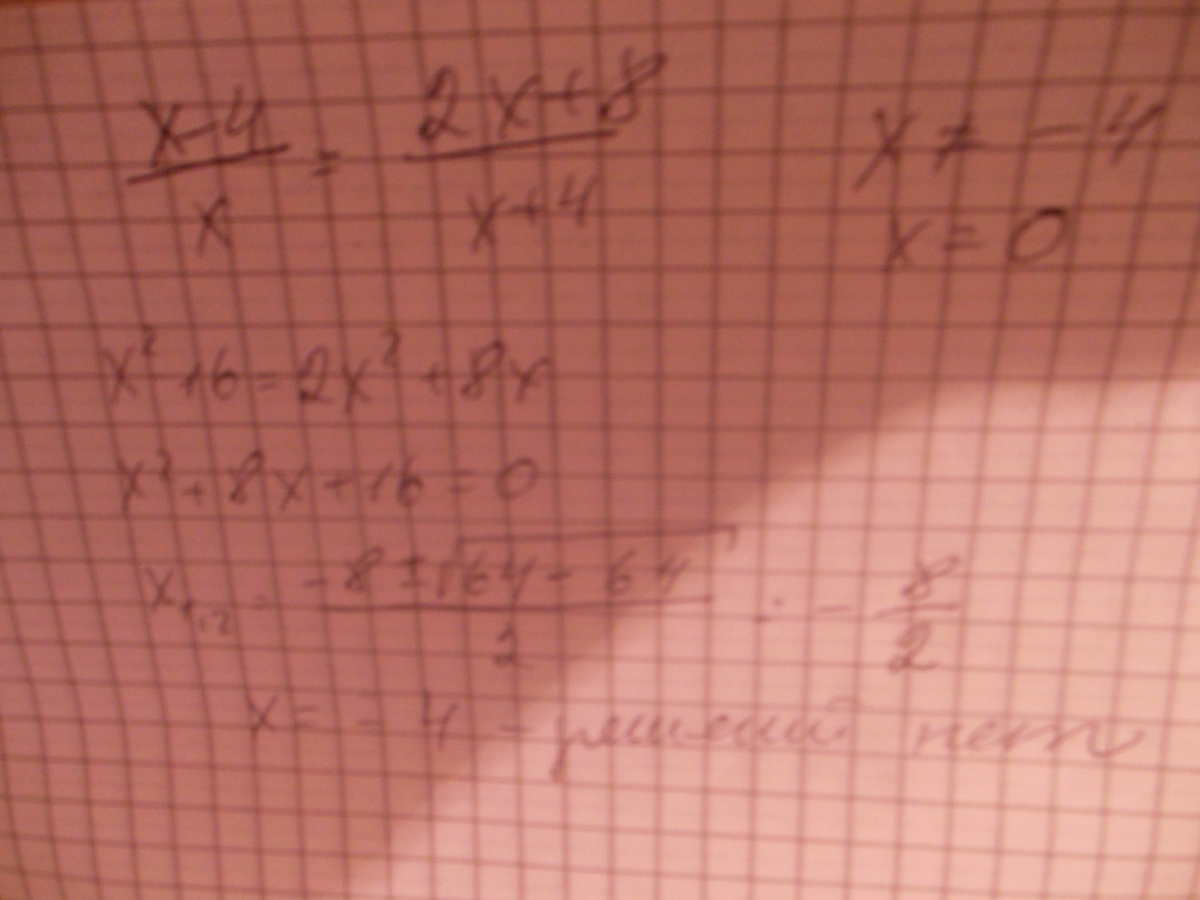 x-4/x = 2x+8/x+4
x ≠ -4
x = 0
x² - 16 = 2x² + 8x
x² + 8x + 16 = 0
x₁,₂ = -8 ± √64 - 64 / 2 = - 8/2
x = - 4 - решений нет